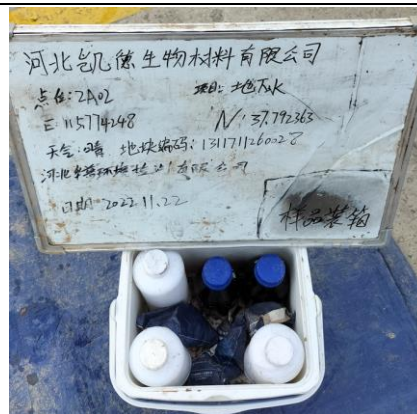 河北凯德生物材料有限公司
点位:2A02 项目:地下水
E:115.774248 N:37.792363
天气:晴 地块编码:1311711260028
河北 环境检测有限公司
日期:2022.11.22
样品装箱